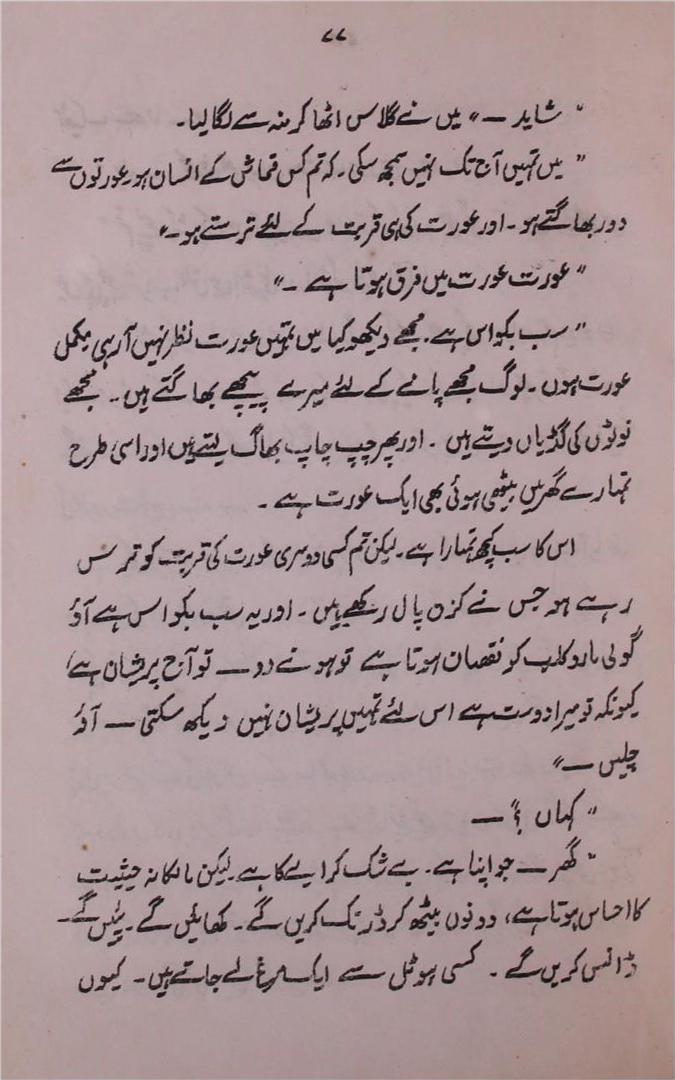 ۷۷
"شاید — " میں نے گلاس اٹھا کر منہ سے لگا لیا۔
"میں تمہیں آج تک نہیں سمجھ سکی۔ کہ تم کس قماش کے انسان ہو۔ عورتوں سے
دور بھاگتے ہو۔ اور عورت کی ہی قربت کے لئے ترستے ہو۔"
"عورت عورت میں فرق ہوتا ہے ۔"
"سب بکواس ہے۔ مجھے دیکھو کیا میں تمہیں عورت نظر نہیں آ رہی مکمل
عورت ہوں۔ لوگ مجھے پانے کے لئے میرے پیچھے بھاگتے ہیں۔ مجھے
نوٹوں کی گڈیاں دیتے ہیں ۔ اور پھر چپ چاپ بھاگ لیتے ہیں اور اسی طرح
تمہارے گھر میں بیٹھی ہوئی بھی ایک عورت ہے ۔
اس کا سب کچھ تمہارا ہے۔ لیکن تم کسی دوسری عورت کی قربت کو ترس
رہے ہو جس نے کزن پال رکھے ہیں ۔ اور یہ سب بکواس ہے آؤ
گولی مارو کلب کو نقصان ہوتا ہے تو ہونے دو — تو آج پریشان ہے،
کیونکہ تو میرا دوست ہے اس لئے تمہیں پریشان نہیں دیکھ سکتی — آؤ
چلیں — "
"کہاں ؟" —
"گھر — جو اپنا ہے۔ بے شک کرایے کا ہے۔ لیکن مالکانہ حیثیت
کا احساس ہوتا ہے، دونوں بیٹھ کر ڈرنک کریں گے۔ کھائیں گے۔ پئیں گے۔
ڈانس کریں گے ۔ کسی ہوٹل سے ایک مرغ لے جاتے ہیں۔ کیوں